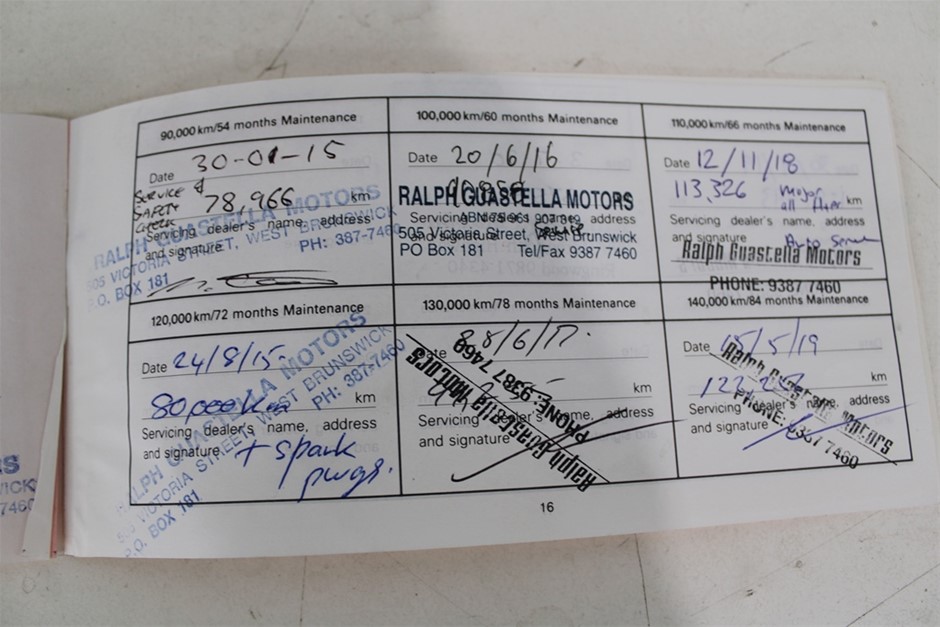 90,000 km/54 months Maintenance
Date 30-01-15
SERVICE &
SAFETY
78,966 km
Servicing dealer's name, address
and signature
RALPH GUASTELLA MOTORS
505 VICTORIA STREET, WEST BRUNSWICK
P.O. BOX 181 PH: 387-7460
100,000 km/60 months Maintenance
Date 20/6/16
RALPH GUASTELLA MOTORS
Servicing dealer's name, address
and signature
505 Victoria Street, West Brunswick
PO Box 181 Tel/Fax 9387 7460
110,000 km/66 months Maintenance
Date 12/11/18
113,326 km
Major
Servicing dealer's name, address
and signature
Ralph Guastella Motors
PHONE: 9387 7460
120,000 km/72 months Maintenance
Date 24/8/15
80,000 km
Servicing dealer's name, address
and signature
+ spark
plugs.
RALPH GUASTELLA MOTORS
505 VICTORIA STREET, WEST BRUNSWICK
P.O. BOX 181 PH: 387-7460
130,000 km/78 months Maintenance
Date /6/17.
km
Servicing dealer's name, address
and signature
Ralph Guastella Motors
PHONE: 9387 7460
140,000 km/84 months Maintenance
Date 15/5/19
km
Servicing dealer's name, address
and signature
Ralph Guastella Motors
PHONE: 9387 7460
16